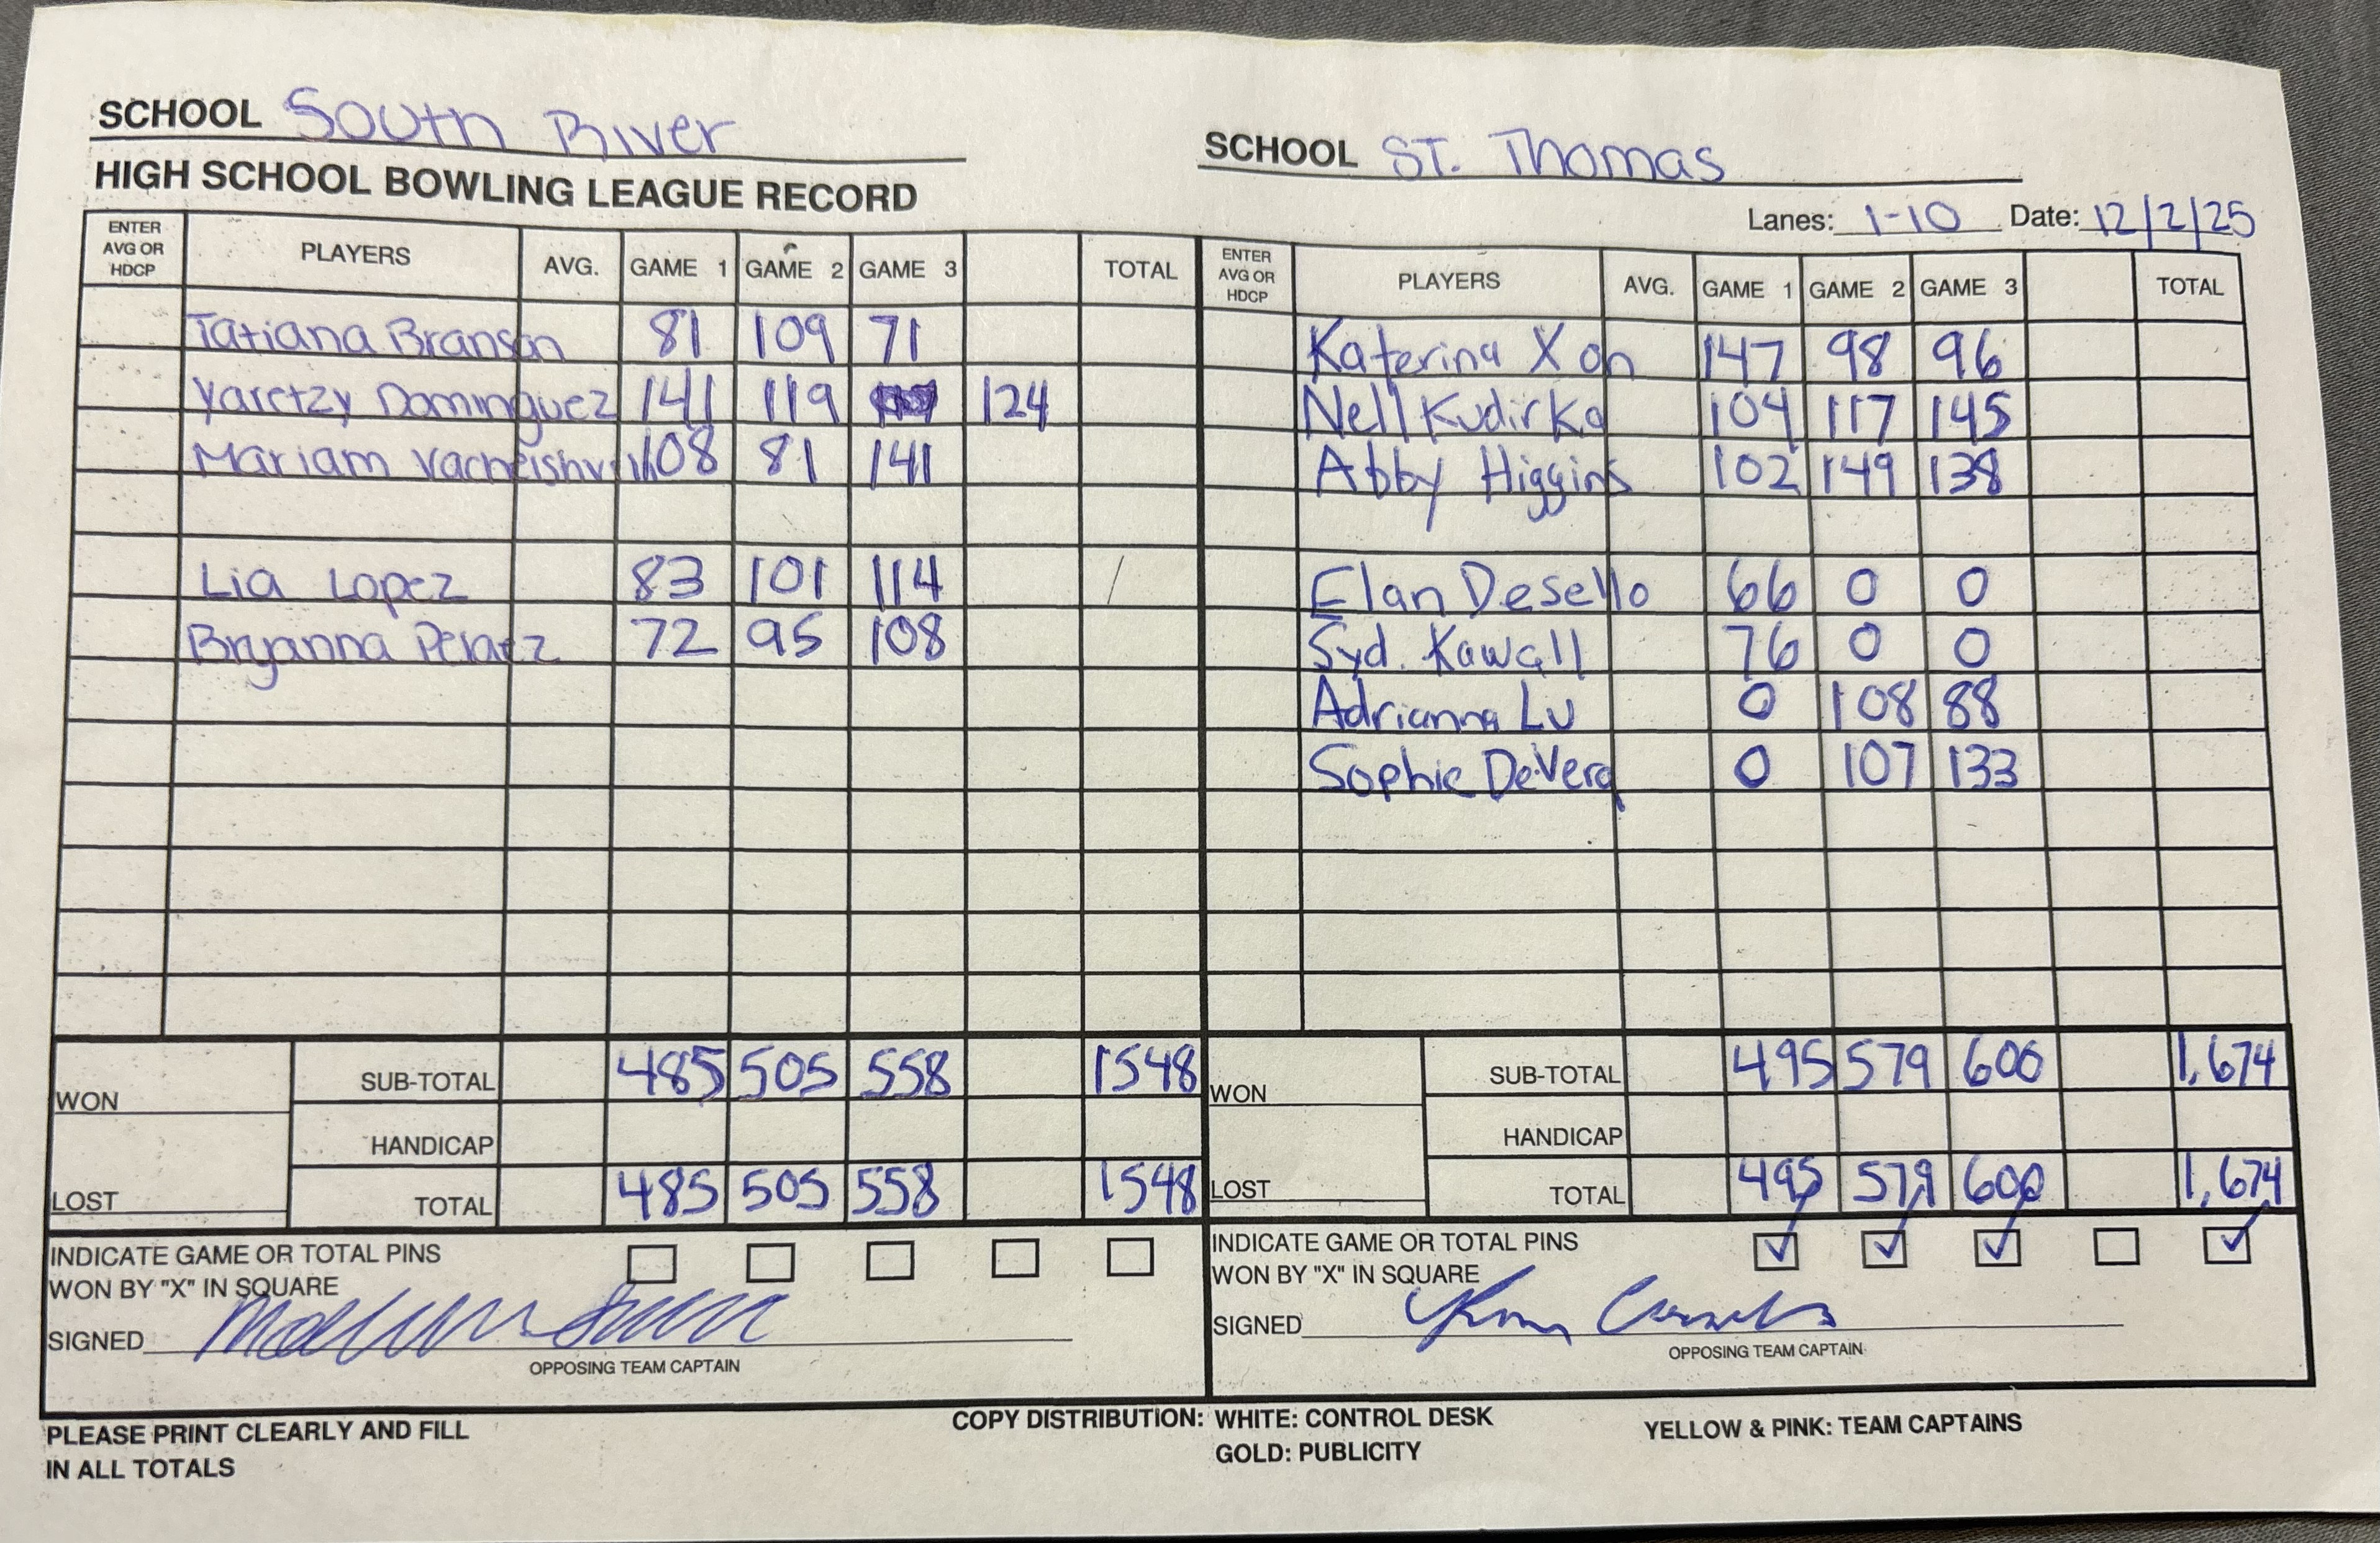 SCHOOL South River
SCHOOL ST. Thomas
HIGH SCHOOL BOWLING LEAGUE RECORD
Lanes: 1-10 Date: 12/2/25
ENTER AVG OR HDCP PLAYERS AVG. GAME 1 GAME 2 GAME 3 TOTAL ENTER AVG OR HDCP PLAYERS AVG. GAME 1 GAME 2 GAME 3 TOTAL
Tatiana Branson 81 109 71 Katerina Xon 147 98 96
Yaretzy Dominguez 141 119 124 Nell Kudirka 104 117 145
Mariam 108 81 141 Abby Higgins 102 149 138
Lia Lopez 83 101 114 / Elan Desello 66 0 0
Bryanna 72 95 108 Syd. Kawall 76 0 0
Adrianna Lu 0 108 88
Sophie DeVera 0 107 133
WON SUB-TOTAL 485 505 558 1548 WON SUB-TOTAL 495 579 600 1,674
HANDICAP HANDICAP
LOST TOTAL 485 505 558 1548 LOST TOTAL 495 579 600 1,674
INDICATE GAME OR TOTAL PINS INDICATE GAME OR TOTAL PINS
WON BY "X" IN SQUARE WON BY "X" IN SQUARE
SIGNED SIGNED
OPPOSING TEAM CAPTAIN OPPOSING TEAM CAPTAIN
PLEASE PRINT CLEARLY AND FILL COPY DISTRIBUTION: WHITE: CONTROL DESK YELLOW & PINK: TEAM CAPTAINS
IN ALL TOTALS GOLD: PUBLICITY